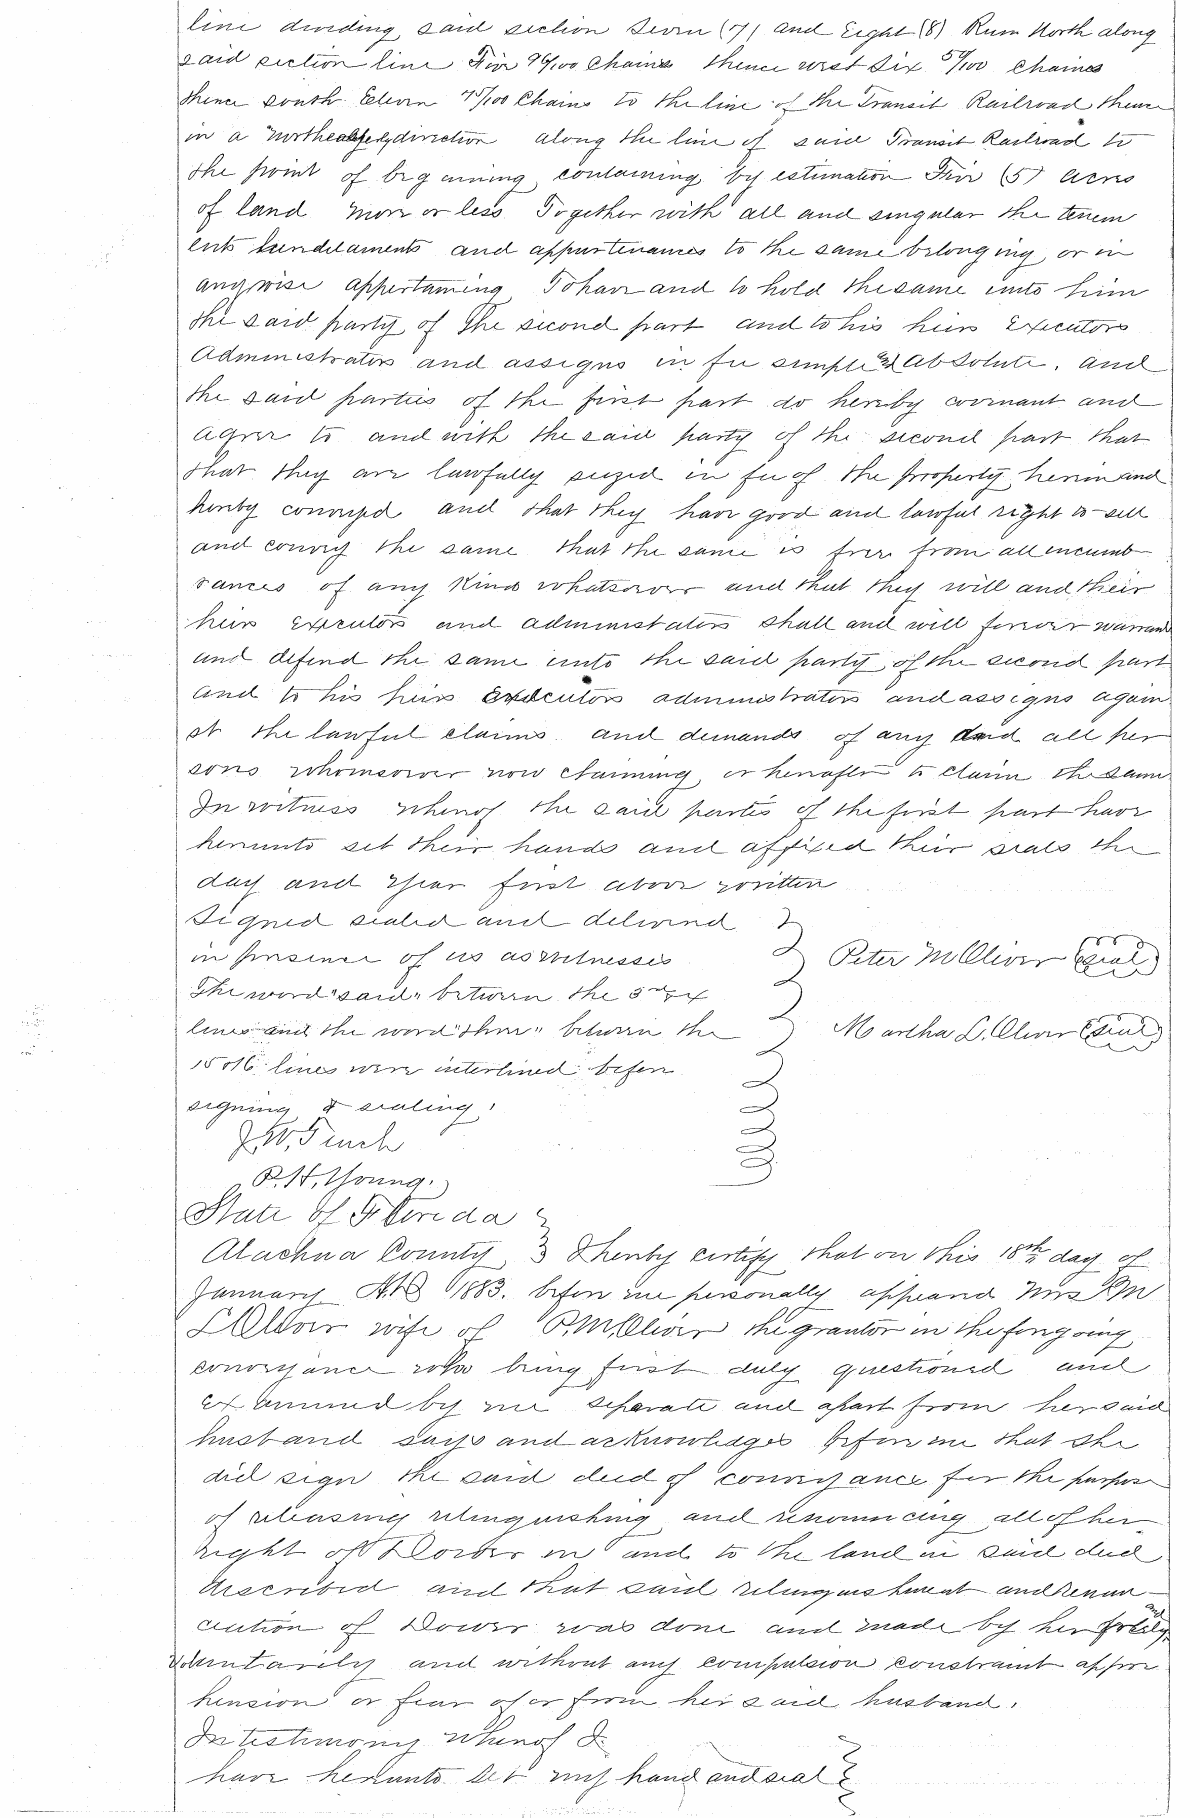 line dividing said section Seven (7) and Eight (8) Rum North along
said section line Five 90/100 Chains thence west Six 50/100 Chains
thence south Eleven 75/100 Chains to the line of the Transit Railroad thence
in a northeasterly direction along the line of said Transit Railroad to
the point of beginning containing by estimation Five (5) acres
of land more or less Together with all and singular the tenem
ents hereditaments and appurtenances to the same belonging or in
anywise appertaining To have and to hold the same unto him
the said party of the second part and to his heirs Executors
Administrators and assigns in fee simple and absolute. and
the said parties of the first part do hereby covenant and
agree to and with the said party of the second part that
that they are lawfully seized in fee of the property herein and
hereby conveyed and that they have good and lawful right to sell
and convey the same that the same is free from all encumb
rances of any Kind whatsoever and that they will and their
heirs Executors and administators shall and will forever warrant
and defend the same unto the said party of the second part
and to his heirs Executors administrators and assigns again
st the lawful claims and demands of any and all per
sons whomsoever now claiming or hereafter to claim the same
In witness whereof the said parties of the first part have
hereunto set their hands and affixed their seals the
day and year first above written
Signed sealed and delivered
in presence of us as witnesses Peter M Oliver (seal)
The word "said" between the 3rd & 4
lines and the word "their" between the Martha L. Oliver (seal)
15 & 16 lines were interlined before
signing & sealing.
J. W. Finch
P. H. Young.
State of Florida
Alachua County I hereby certify that on this 18th day of
January AD 1883. before me personally appeared Mrs PM
L Oliver wife of P. M. Oliver the grantor in the foregoing
conveyance who being first duly questioned and
examined by me separate and apart from her said
husband says and acknowledges before me that she
did sign the said deed of conveyance for the purpose
of releasing relinquishing and renouncing all of her
right of Dower in and to the land in said deed
described and that said relinquishment and renun-
ciation of Dower was done and made by her freely and
voluntarily and without any compulsion constraint appre
hension or fear of or from her said husband.
In testimony whereof I
have hereunto set my hand and seal